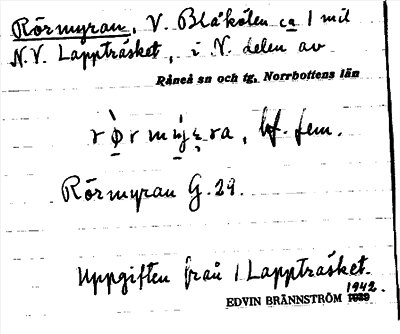 Rörmyran, V. Blåkölen ca 1 mil
N.V. Lappträsket, i N. delen av
Råneå sn och tg, Norrbottens län
bf. fem.
Rörmyran G. 29.
Uppgiften från 1. Lappträsket.
1942.
EDVIN BRÄNNSTRÖM 1939